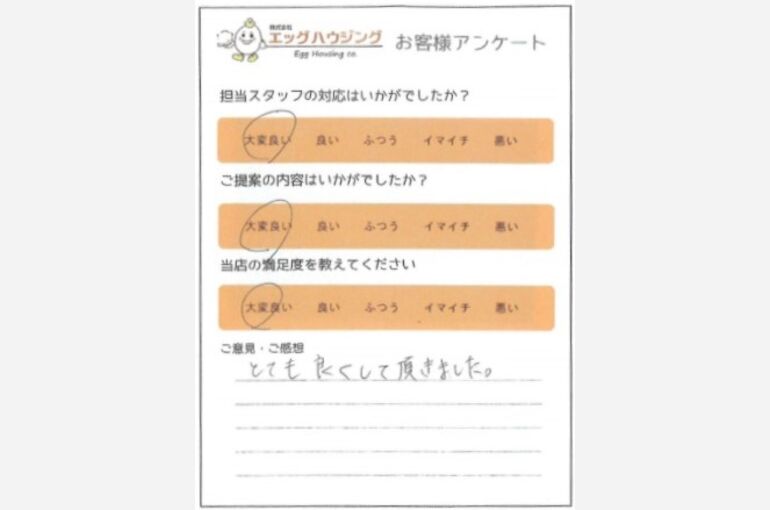 株式会社
エッグハウジング
Egg Housing co.
お客様アンケート
担当スタッフの対応はいかがでしたか？
大変良い 良い ふつう イマイチ 悪い
ご提案の内容はいかがでしたか？
大変良い 良い ふつう イマイチ 悪い
当店の満足度を教えてください
大変良い 良い ふつう イマイチ 悪い
ご意見・ご感想
とても良くして頂きました。